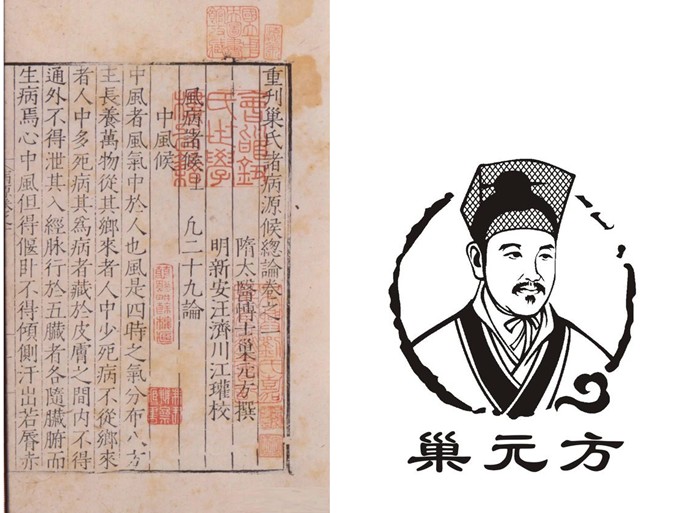 重刋巢氏諸病源候總論卷之一
隋太醫博士巢元方撰
明新安汪濟川江瓘校
風病諸候上 凢二十九論
中風候
中風者風氣中於人也風是四時之氣分布八方
主長養萬物從其鄉來者人中少死病不從鄉來
者人中多死病其為病者藏於皮膚之間内不得
通外不得泄其入經脉行於五臟者各隨臟腑而
生病焉心中風但得偃卧不得傾側汗出若唇赤
巢元方